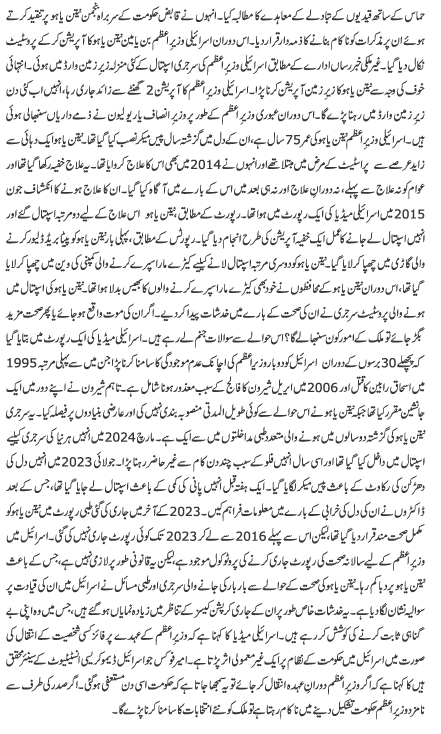 حماس کے ساتھ قیدیوں کے تبادلے کے معاہدے کا مطالبہ کیا۔ انہوں نے قابض حکومت کے سربراہ بنجمن نیتن یاہو پر تنقید کرتے
ہوئے ان پر مذاکرات کو ناکام بنانے کا ذمہ دار قرار دیا۔ اس دوران اسرائیلی وزیراعظم بن یامین نیتن یاہو کا آپریشن کر کے پروسٹیٹ
نکال دیا گیا۔ غیر ملکی خبر رساں ادارے کے مطابق اسرائیلی وزیراعظم کی سرجری اسپتال کے کئی منزلہ زیر زمین وارڈ میں ہوئی۔ انتہائی
خوف کی وجہ سے نیتن یاہو کا زیر زمین آپریشن کرنا پڑا۔ اسرائیلی وزیراعظم کا آپریشن 2 گھنٹے سے زائد جاری رہا، انہیں اب کئی دن
زیر زمین وارڈ میں رہنا پڑے گا۔ اس دوران عبوری وزیراعظم کے طور پر وزیر انصاف یاریو لیون نے ذمے داریاں سنبھالی ہوئی
ہیں۔ اسرائیلی وزیراعظم نیتن یاہو کی عمر 75 سال ہے، ان کے دل میں گزشتہ سال پیس میکر نصب کیا گیا تھا۔ نیتن یاہو ایک دہائی سے
زاید عرصے سے پراسٹیٹ کے مرض میں مبتلا تھے اور انہوں نے 2014 میں بھی اس کا علاج کروایا تھا۔ یہ علاج خفیہ رکھا گیا تھا اور
عوام کو نہ علاج سے پہلے، نہ دوران علاج اور نہ ہی بعد میں اس کے بارے میں آگاہ کیا گیا۔ ان کا علاج ہونے کا انکشاف جون
2015 میں اسرائیلی میڈیا کی ایک رپورٹ میں ہوا تھا۔ رپورٹ کے مطابق، نیتن یاہو اس علاج کے لیے دو مرتبہ اسپتال گئے اور
انہیں اسپتال لے جانے کا عمل ایک خفیہ آپریشن کی طرح انجام دیا گیا۔ رپورٹس کے مطابق، پہلی بار نیتن یاہو کو پیٹا بریڈ ڈلیور کرنے
والی گاڑی میں چھپا کر لایا گیا۔ نیتن یاہو کو دوسری مرتبہ اسپتال لانے کیلیے کیڑے مار اسپرے کرنے والی کمپنی کی وین میں چھپا کر لایا
گیا، اس دوران نیتن یاہو کے محافظوں نے خود بھی کیڑے مار اسپرے کرنے والوں کا بھیس بدلا ہوا تھا۔ نیتن یاہو کی اسپتال میں
ہونے والی پروسٹیٹ سرجری نے ان کی صحت کے بارے میں خدشات پیدا کر دیے۔ اگر ان کی موت واقع ہو جائے یا پھر صحت مزید
بگڑ جائے تو ملک کے امور کون سنبھالے گا؟ اس حوالے سے سوالات جنم لے رہے ہیں۔ اسرائیلی میڈیا کی ایک رپورٹ میں بتایا گیا
کہ پچھلے 30 برسوں کے دوران اسرائیل کو دو بار وزیراعظم کی اچانک عدم موجودگی کا سامنا کرنا پڑا جن میں سے پہلی مرتبہ 1995
میں اسحاق رابین کا قتل اور 2006 میں ایریل شیرون کا فالج کے سبب معذور ہونا شامل ہے۔ تاہم شیرون نے اپنے دور میں ایک
جانشین مقرر کیا تھا جبکہ نیتن یاہو نے اس حوالے سے کوئی طویل المدتی منصوبہ بندی نہیں کی اور عارضی بنیادوں پر فیصلہ کیا۔ یہ سرجری
نیتن یاہو کی گزشتہ دو سالوں میں ہونے والی متعدد طبی مداخلتوں میں سے ایک ہے۔ مارچ 2024 میں انہیں ہرنیا کی سرجری کیلیے
اسپتال میں داخل کیا گیا تھا اور اسی سال انہیں فلو کے سبب چند دن کام سے غیر حاضر رہنا پڑا۔ جولائی 2023 میں انہیں دل کی
دھڑکن کی رکاوٹ کے باعث پیس میکر لگایا گیا۔ ایک ہفتہ قبل انہیں پانی کی کمی کے باعث اسپتال لے جایا گیا تھا، جس کے بعد
ڈاکٹروں نے ان کی دل کی خرابی کے بارے میں معلومات فراہم کیں۔ 2023 کے آخر میں جاری کی گئی طبی رپورٹ میں نیتن یاہو کو
مکمل صحت مند قرار دیا گیا تھا، لیکن اس سے پہلے 2016 سے لے کر 2023 تک کوئی رپورٹ جاری نہیں کی گئی۔ اسرائیل میں
وزیراعظم کے لیے سالانہ صحت کی رپورٹ جاری کرنے کی پروٹوکول موجود ہے، لیکن یہ قانونی طور پر لازمی نہیں ہے، جس کے باعث
نیتن یاہو پر دباؤ کم رہا۔ نیتن یاہو کی صحت کے حوالے سے بار بار کی جانے والی سرجری اور طبی مسائل نے اسرائیل میں ان کی قیادت پر
سوالیہ نشان لگا دیا ہے۔ یہ خدشات خاص طور پر ان کے جاری کرپشن کیسز کے تناظر میں زیادہ نمایاں ہو گئے ہیں، جس میں وہ اپنی بے
گناہی ثابت کرنے کی کوشش کر رہے ہیں۔ اسرائیلی میڈیا کا کہنا ہے کہ وزیراعظم کے عہدے پر فائز کسی شخصیت کے انتقال کی
صورت میں اسرائیل میں حکومت کے نظام پر ایک غیر معمولی اثر پڑتا ہے۔ امیر فوکس جو اسرائیل ڈیموکریسی انسٹیٹیوٹ کے سینئر محقق
ہیں کا کہنا ہے کہ اگر وزیراعظم دوران عہدہ انتقال کر جائے تو یہ سمجھا جاتا ہے کہ حکومت اسی دن مستعفی ہو گئی۔ اگر صدر کی طرف سے
نامزد وزیراعظم حکومت تشکیل دینے میں ناکام رہتا ہے تو ملک کو نئے انتخابات کا سامنا کرنا پڑے گا۔